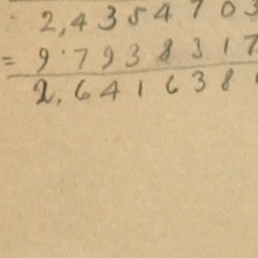 2,4354703
= 9.7938317
2.641638